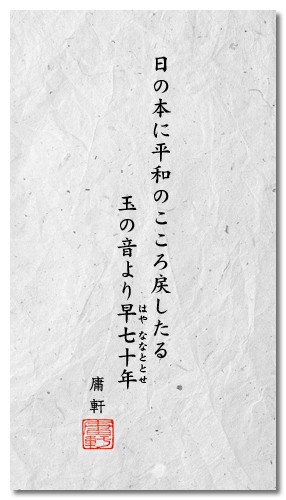 日の本に平和のこころ戻したる
玉の音より早七十年
はや ななととせ
庸軒